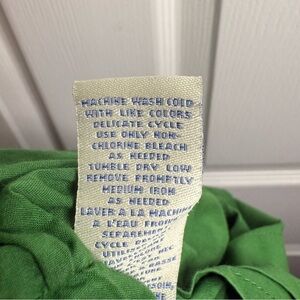 MACHINE WASH COLD
WITH LIKE COLORS
DELICATE CYCLE
USE ONLY NON-
CHLORINE BLEACH
AS NEEDED
TUMBLE DRY LOW
REMOVE PROMPTLY
MEDIUM IRON
AS NEEDED
LAVER A LA MACHIN
A L'EAU FROID
SEPAREMENT
CYCLE DE
UTILIS
SOIN,